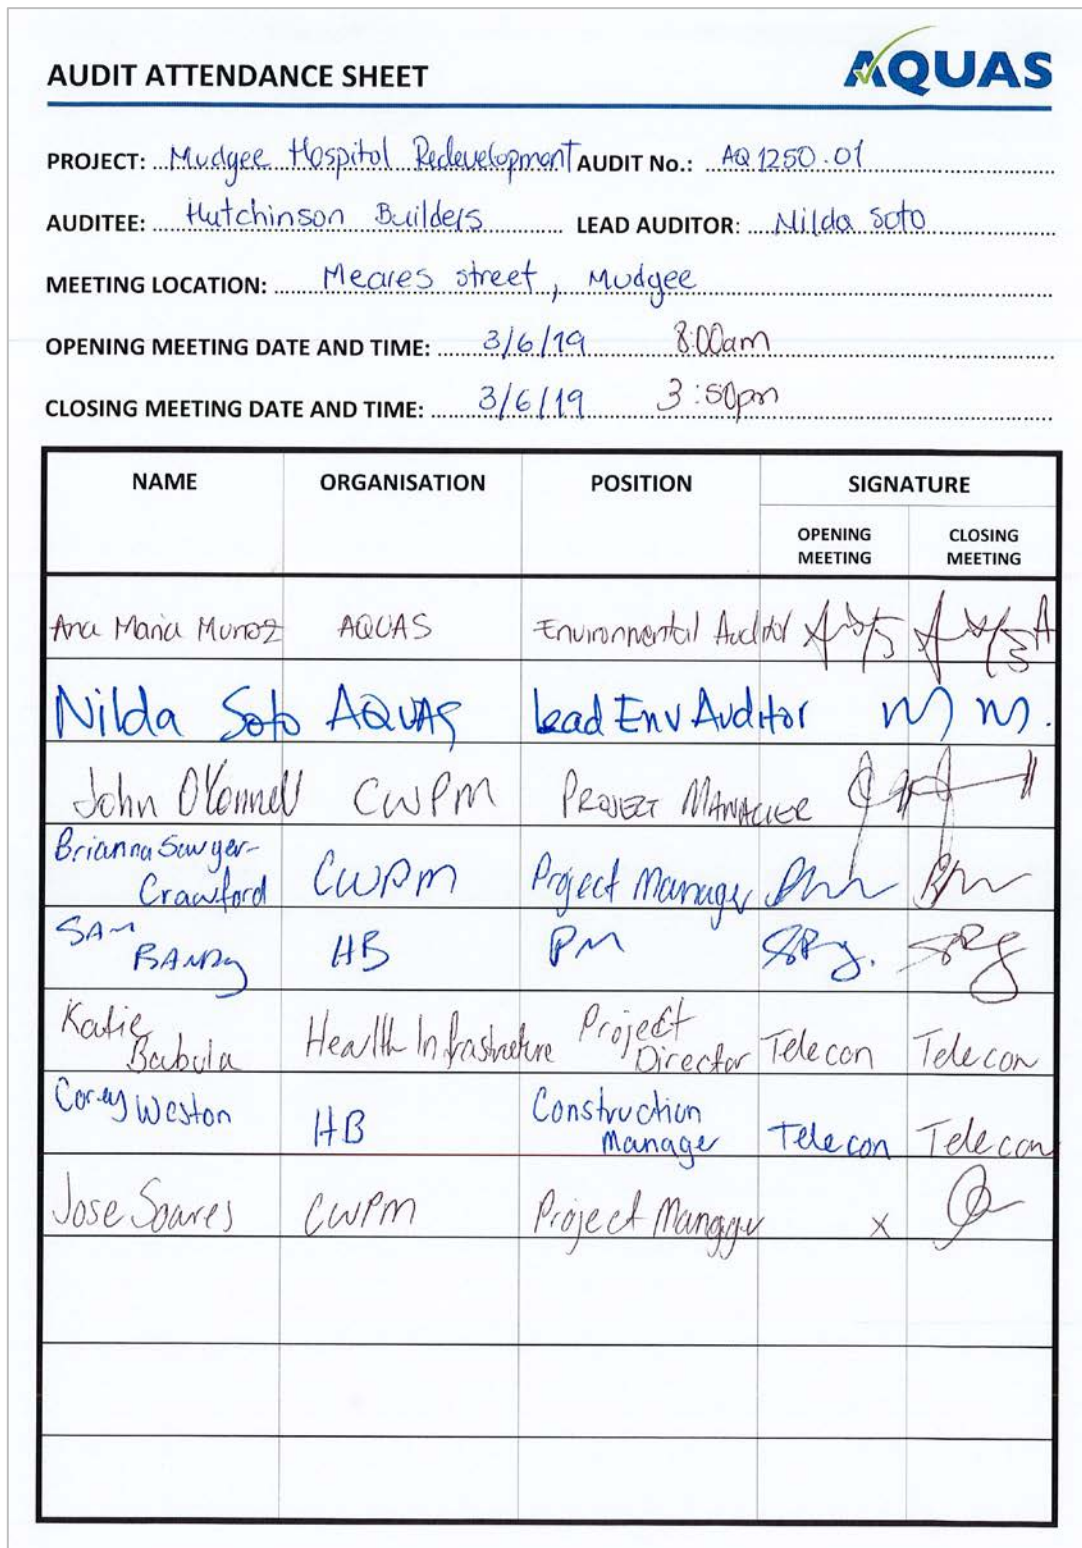 AQUAS
AUDIT ATTENDANCE SHEET
PROJECT: Mudgee Hospital Redevelopment AUDIT No.: AQ1250.01
AUDITEE: Hutchinson Builders LEAD AUDITOR: Nilda Soto
MEETING LOCATION: Meares street, Mudgee
OPENING MEETING DATE AND TIME: 3/6/19 8:00am
CLOSING MEETING DATE AND TIME: 3/6/19 3:50pm
NAME ORGANISATION POSITION SIGNATURE
OPENING MEETING CLOSING MEETING
Ana Maria Munoz AQUAS Environmental Auditor
Nilda Soto AQUAS Lead Env Auditor
John O'Connell CWPM PROJECT MANAGER
Brianna Sawyer-
Crawford CWPM Project Manager
SAM HB PM
Katie Health Infrastructure Project
Babula Director Telecon Telecon
Corey Weston HB Construction
Manager Telecon Telecon
Jose Soares CWPM Project Manager x